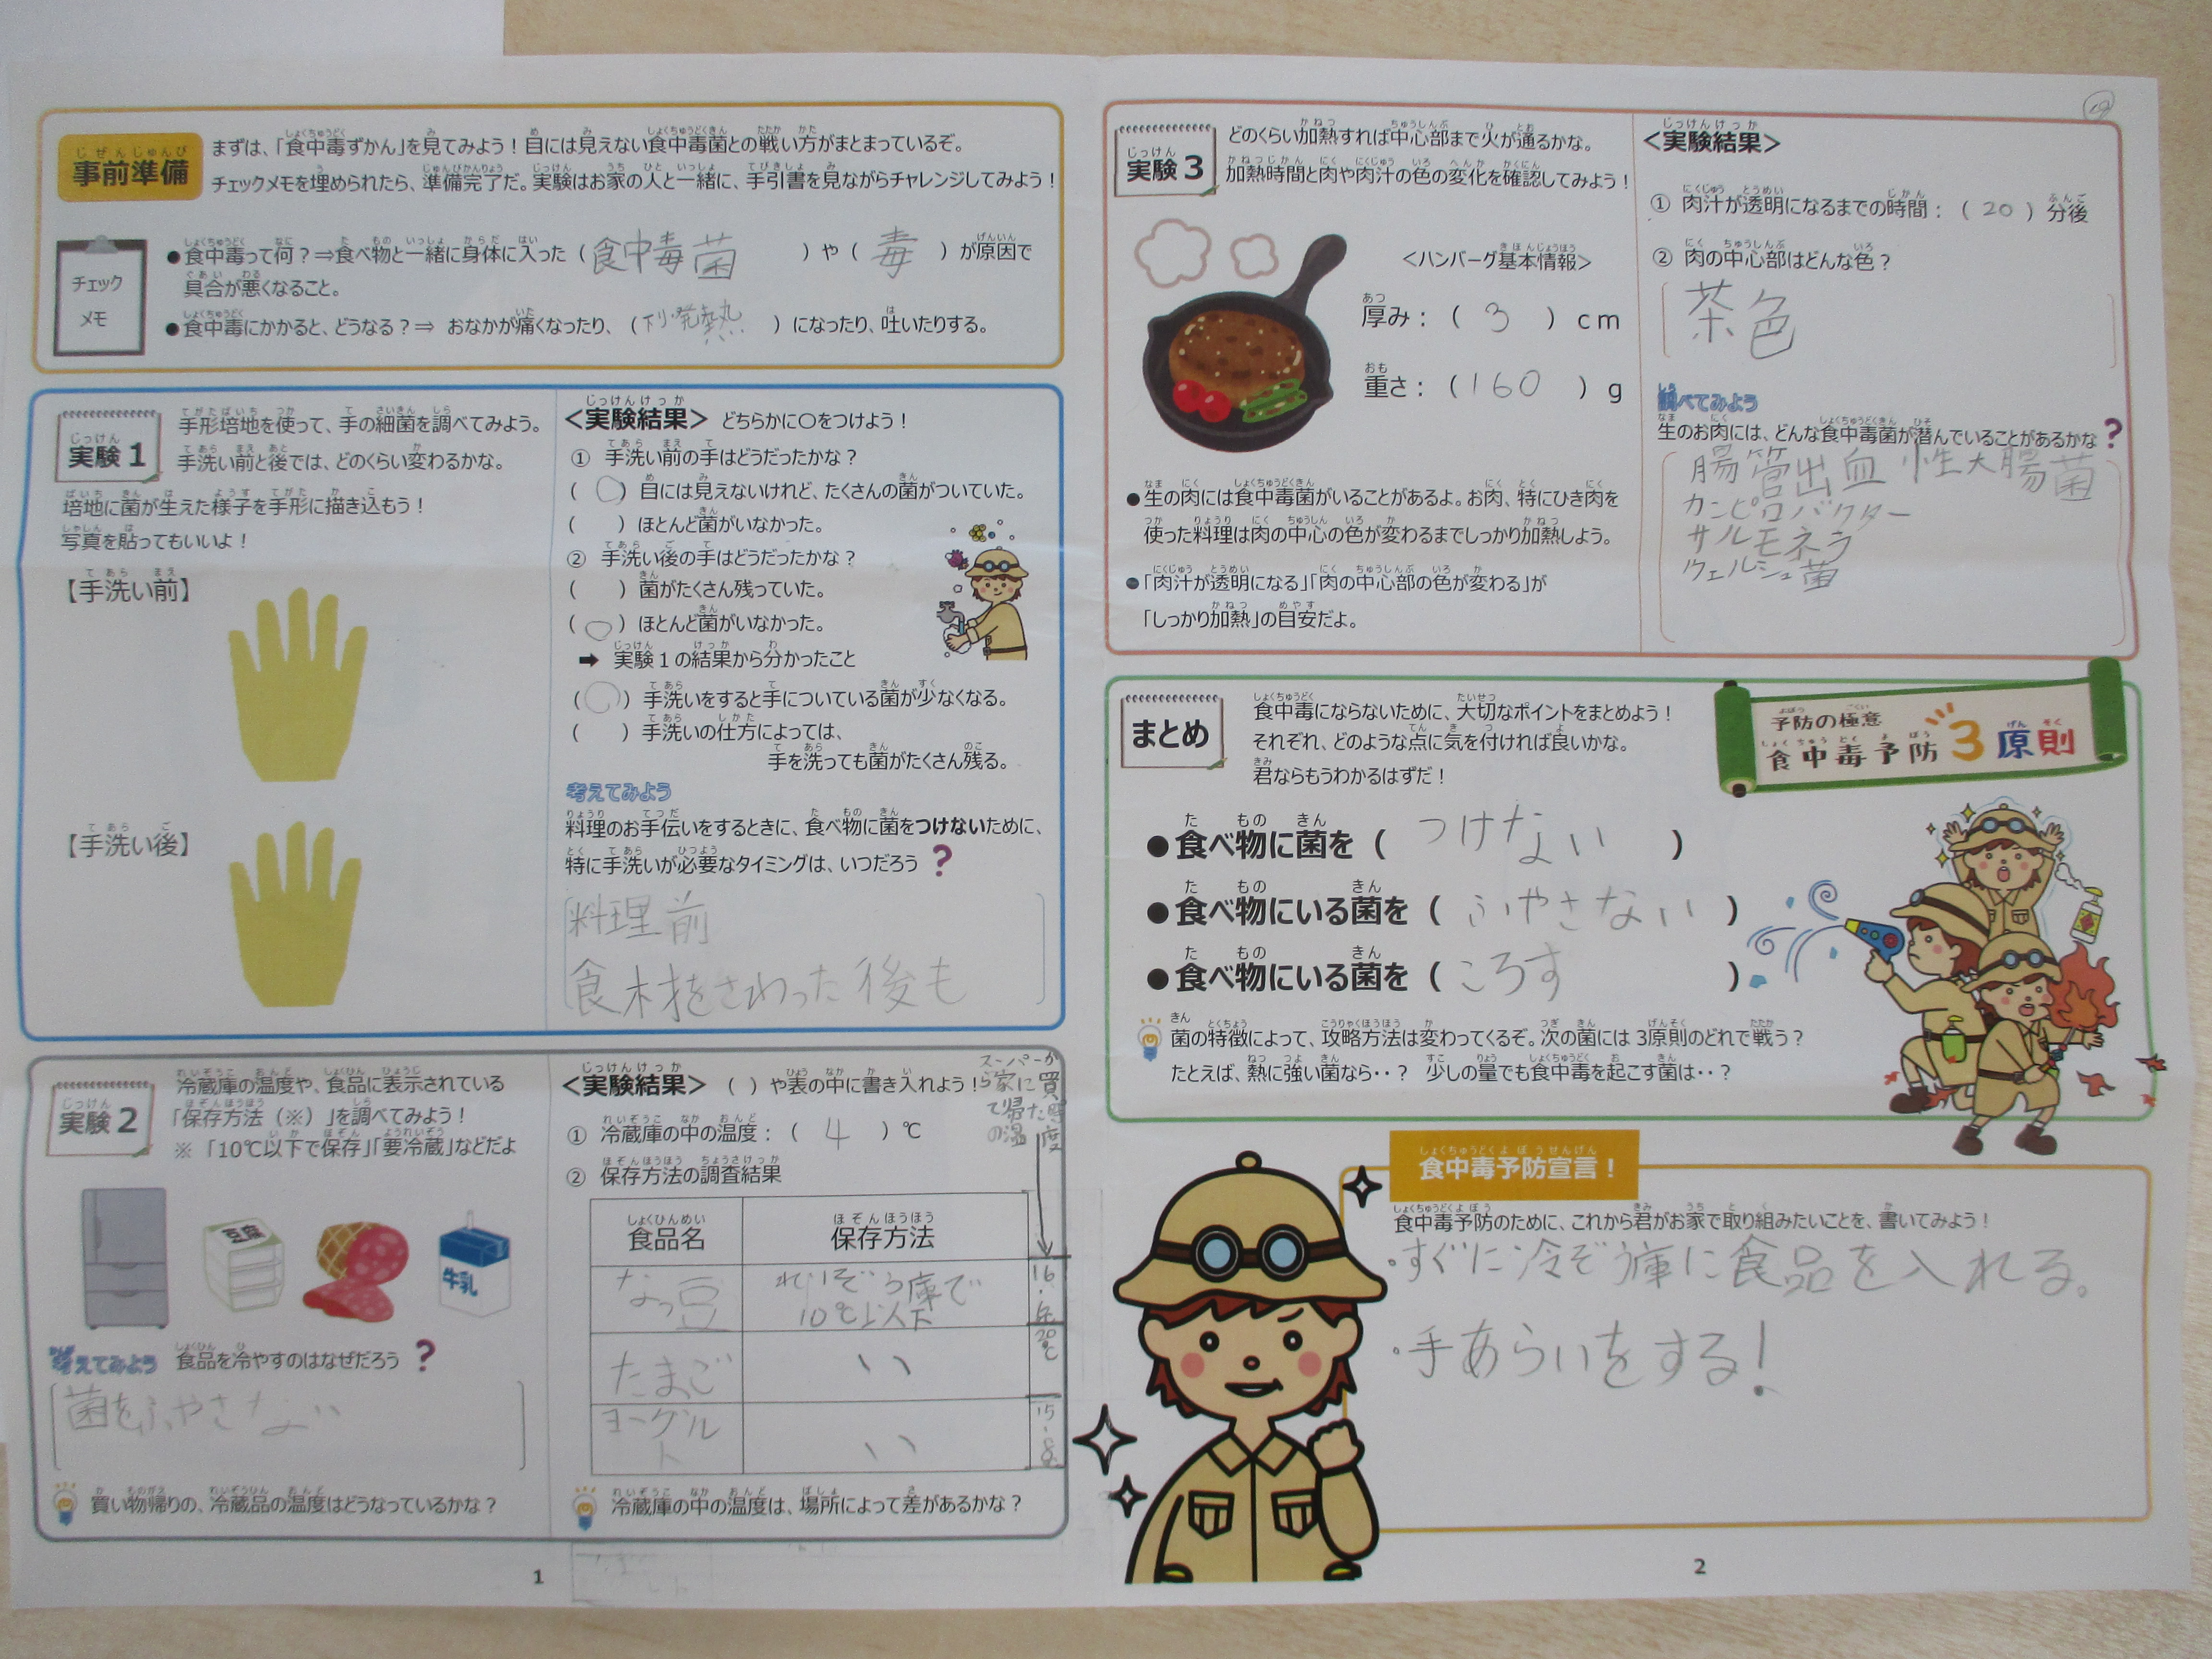 事前準備
まずは、「食中毒ずかん」を見てみよう！目には見えない食中毒菌との戦い方がまとまっているぞ。
チェックメモを埋められたら、準備完了だ。実験はお家の人と一緒に、手引書を見ながらチャレンジしてみよう！
チェック
メモ
●食中毒って何？⇒食べ物と一緒に身体に入った（食中毒菌）や（毒）が原因で
具合が悪くなること。
●食中毒にかかると、どうなる？⇒ おなかが痛くなったり、（下り発熱）になったり、吐いたりする。
実験１
手形培地を使って、手の細菌を調べてみよう。
手洗い前と後では、どのくらい変わるかな。
培地に菌が生えた様子を手形に描き込もう！
写真を貼ってもいいよ！
【手洗い前】
【手洗い後】
＜実験結果＞ どちらかに〇をつけよう！
① 手洗い前の手はどうだったかな？
（〇）目には見えないけれど、たくさんの菌がついていた。
（　）ほとんど菌がいなかった。
② 手洗い後の手はどうだったかな？
（　）菌がたくさん残っていた。
（〇）ほとんど菌がいなかった。
➡ 実験１の結果から分かったこと
（〇）手洗いをすると手についている菌が少なくなる。
（　）手洗いの仕方によっては、
手を洗っても菌がたくさん残る。
考えてみよう
料理のお手伝いをするときに、食べ物に菌をつけないために、
特に手洗いが必要なタイミングは、いつだろう？
料理前
食材をさわった後も
実験２
冷蔵庫の温度や、食品に表示されている
「保存方法（※）」を調べてみよう！
※「10℃以下で保存」「要冷蔵」などだよ
豆腐
牛乳
考えてみよう 食品を冷やすのはなぜだろう？
菌をふやさない
買い物帰りの、冷蔵品の温度はどうなっているかな？
＜実験結果＞（ ）や表の中に書き入れよう！
① 冷蔵庫の中の温度：（4）℃
② 保存方法の調査結果
スーパーか
ら家に買
て帰た時
の温度
食品名 保存方法
なっ豆 れいぞう庫で
10℃以下
たまご 〃 20℃
ヨーグル
ト 〃 15.8
冷蔵庫の中の温度は、場所によって差があるかな？
1
実験３
どのくらい加熱すれば中心部まで火が通るかな。
加熱時間と肉や肉汁の色の変化を確認してみよう！
＜ハンバーグ基本情報＞
厚み：（3）cm
重さ：（160）g
●生の肉には食中毒菌がいることがあるよ。お肉、特にひき肉を
使った料理は肉の中心の色が変わるまでしっかり加熱しよう。
●「肉汁が透明になる」「肉の中心部の色が変わる」が
「しっかり加熱」の目安だよ。
＜実験結果＞
① 肉汁が透明になるまでの時間：（20）分後
② 肉の中心部はどんな色？
茶色
調べてみよう
生のお肉には、どんな食中毒菌が潜んでいることがあるかな？
腸管出血性大腸菌
カンピロバクター
サルモネラ
ウェルシュ菌
まとめ
食中毒にならないために、大切なポイントをまとめよう！
それぞれ、どのような点に気を付ければ良いかな。
君ならもうわかるはずだ！
予防の極意
食中毒予防3原則
●食べ物に菌を（つけない）
●食べ物にいる菌を（ふやさない）
●食べ物にいる菌を（ころす）
菌の特徴によって、攻略方法は変わってくるぞ。次の菌には３原則のどれで戦う？
たとえば、熱に強い菌なら‥？ 少しの量でも食中毒を起こす菌は‥？
食中毒予防宣言！
食中毒予防のために、これから君がお家で取り組みたいことを、書いてみよう！
・すぐに冷ぞう庫に食品を入れる。
・手あらいをする！
2